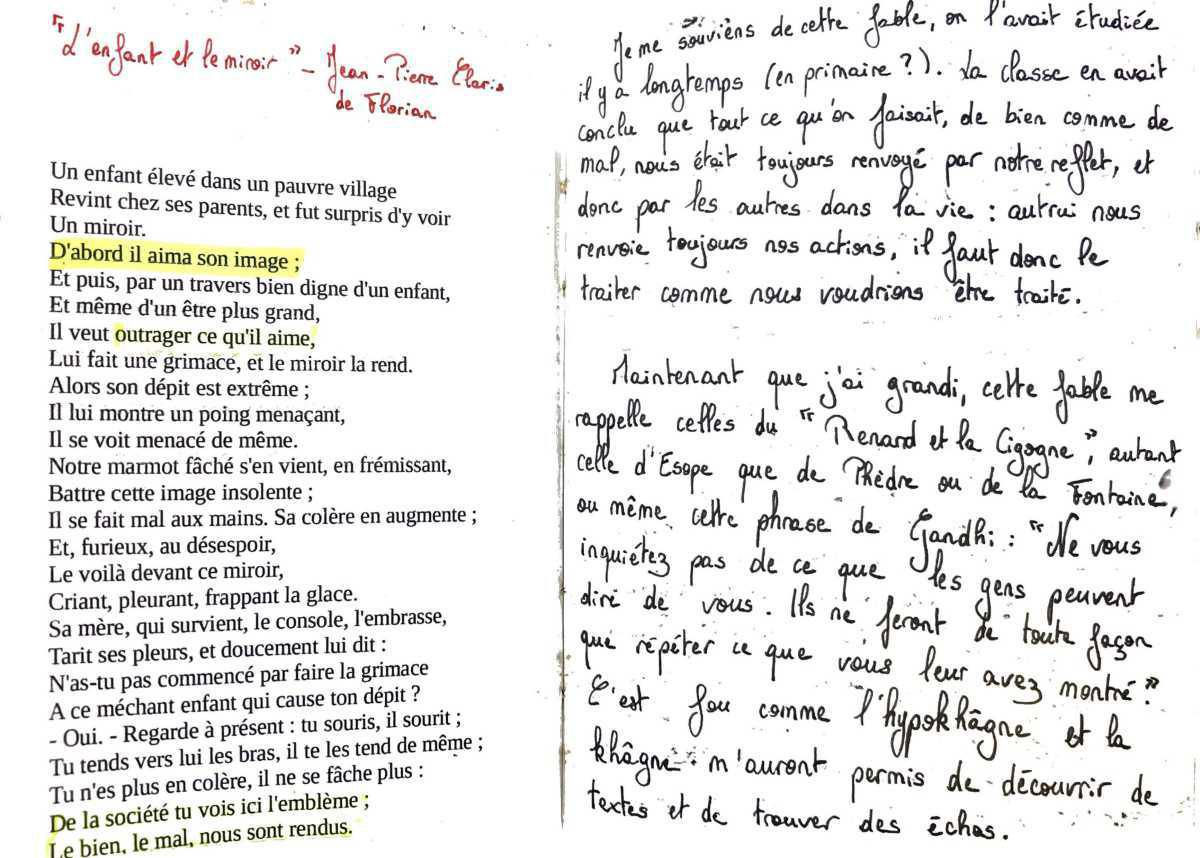 "L'enfant et le miroir" - Jean-Pierre Claris
de Florian
Un enfant élevé dans un pauvre village
Revint chez ses parents, et fut surpris d'y voir
Un miroir.
D'abord il aima son image ;
Et puis, par un travers bien digne d'un enfant,
Et même d'un être plus grand,
Il veut outrager ce qu'il aime,
Lui fait une grimace, et le miroir la rend.
Alors son dépit est extrême ;
Il lui montre un poing menaçant,
Il se voit menacé de même.
Notre marmot fâché s'en vient, en frémissant,
Battre cette image insolente ;
Il se fait mal aux mains. Sa colère en augmente ;
Et, furieux, au désespoir,
Le voilà devant ce miroir,
Criant, pleurant, frappant la glace.
Sa mère, qui survient, le console, l'embrasse,
Tarit ses pleurs, et doucement lui dit :
N'as-tu pas commencé par faire la grimace
A ce méchant enfant qui cause ton dépit ?
- Oui. - Regarde à présent : tu souris, il sourit ;
Tu tends vers lui les bras, il te les tend de même ;
Tu n'es plus en colère, il ne se fâche plus :
De la société tu vois ici l'emblème ;
Le bien, le mal, nous sont rendus.
Je me souviens de cette fable, on l'avait étudiée
il y a longtemps (en primaire ?). La classe en avait
conclu que tout ce qu'on faisait, de bien comme de
mal, nous était toujours renvoyé par notre reflet, et
donc par les autres dans la vie : autrui nous
renvoie toujours nos actions, il faut donc le
traiter comme nous voudrions être traité.
Maintenant que j'ai grandi, cette fable me
rappelle celles du "Renard et la Cigogne", autant
celle d'Esope que de Phèdre ou de la Fontaine,
ou même cette phrase de Gandhi : "Ne vous
inquiétez pas de ce que les gens peuvent
dire de vous. Ils ne feront de toute façon
que répéter ce que vous leur avez montré"
C'est fou comme l'hypokhâgne et la
khâgne m'auront permis de découvrir de
textes et de trouver des échos.